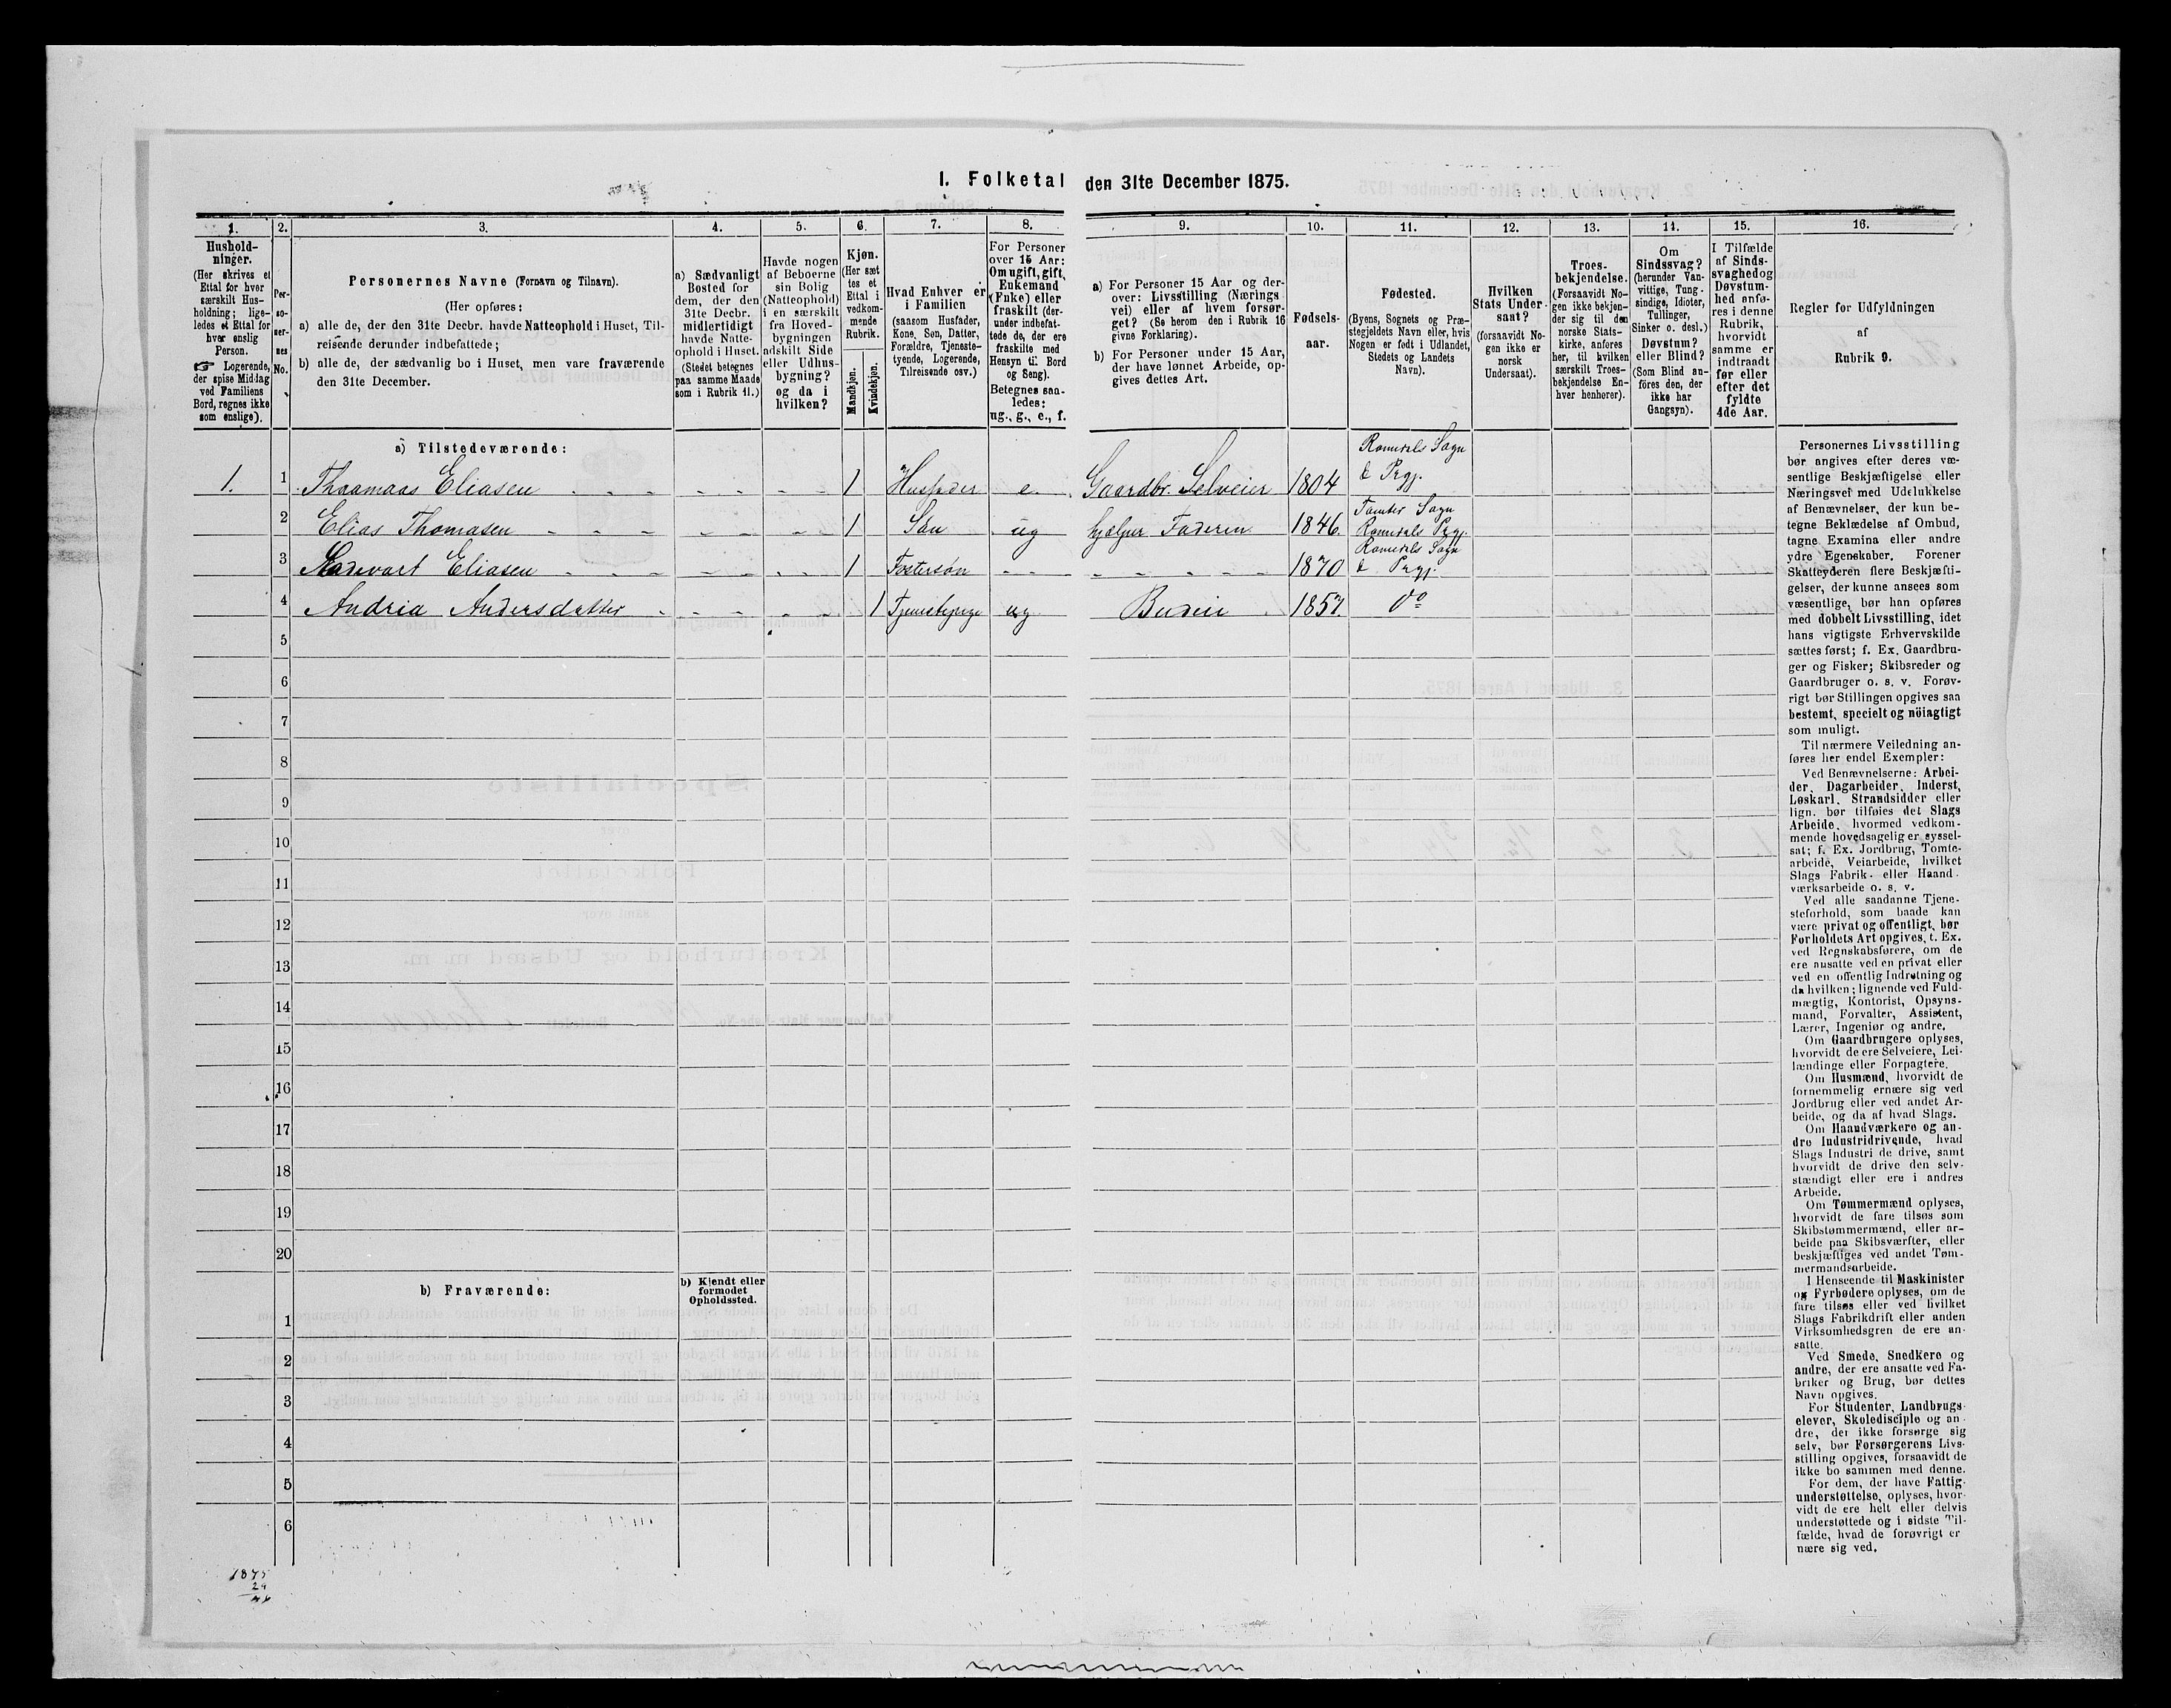 I. Folketal den 31te December 1875.
1.
Hushold-
ninger.
(Her skrives et
Ettal for hver
særskilt Hus-
holdning; lige-
ledes et Ettal for
hver enslig
Person.
☞ Logerende,
der spise Middag
ved Familiens
Bord, regnes ikke
som enslige).
2.
Per-
so-
ner-
nes
No.
3.
Personernes Navne (Fornavn og Tilnavn).
(Her opføres:
a) alle de, der den 31te Decbr. havde Natteophold i Huset, Til-
reisende derunder indbefattede;
b) alle de, der sædvanlig bo i Huset, men vare fraværende
den 31te December.
4.
a) Sædvanligt
Bosted for
dem, der den
31te Decbr.
midlertidigt
havde Natte-
ophold i Huset.
(Stedet betegnes
paa samme Maade
som i Rubrik 11.)
5.
Havde nogen
af Beboerne
sin Bolig
(Natteophold)
i en særskilt
fra Hoved-
bygningen
adskilt Side
eller Udhus-
bygning?
og da i
hvilken?
6.
Kjøn.
(Her sæt
tes et
Ettal i
vedkom-
mende
Rubrik.
Mandkjøn.
Kvindekjøn.
7.
Hvad Enhver er
i Familien
(saasom Husfader,
Kone, Søn, Datter,
Forældre, Tjeneste-
tyende, Logerende,
Tilreisende osv.)
8.
For Personer
over 15 Aar:
Om ugift, gift,
Enkemand
(Enke) eller
fraskilt (der-
under indbefat-
tede de, der ere
fraskilte med
Hensyn til Bord
og Seng).
Betegnes saa-
ledes:
ug., g., e., f.
9.
a) For Personer 15 Aar og der-
over: Livsstilling (Nærings
vei) eller af hvem forsør-
get? (Se herom den i Rubrik 16
givne Forklaring).
b) For Personer under 15 Aar,
der have lønnet Arbeide, op-
gives dettes Art.
10.
Fødsels-
aar.
11.
Fødested.
(Byens, Sognets og Præ-
stegjeldets Navn eller, hvis
Nogen er født i Udlandet,
Stedets og Landets
Navn).
12.
Hvilken
Stats Under-
saat?
(forsaavidt No-
gen ikke er
norsk
Undersaat).
13.
Troes-
bekjendelse.
(Forsaavidt No-
gen ikke bekjen-
der sig til den
norske Stats-
kirke, anføres
her, til hvilken
særskilt Troes-
bekjendelse En-
hver henhører).
14.
Om
Sindssvag?
(herunder Van-
vittige, Tung-
sindige, Idioter,
Tullinger,
Sinker o. desl.)
Døvstum?
eller Blind?
(Som Blind an-
føres den, der
ikke har
Gangsyn).
15.
I Tilfælde
af Sinds-
svaghed og
Døvstum-
hed anfø-
res i denne
Rubrik,
hvorvidt
samme er
indtraadt
før eller
efter det
fyldte
4de Aar.
16.
Regler for Udfyldningen
af
Rubrik 9.
a) Tilstedeværende:
1. 1 Thaamaas Eliasen 1 Husfader e. Gaardbr. Selveier 1804 Romedals Sogn & Prgj.
2 Elias Thomasen 1 Søn ug hjælper Faderen 1846. Tomter Sogn Romedals Prgj.
3 Eliasen 1 Fostersøn 1870 Romedals Sogn & Prgj.
4 Andria Andersdatter 1 Tjenestepige ug Budeie 1857. Do
5
6
7
8
9
10
11
12
13
14
15
16
17
18
19
20
b) Fraværende:
b) Kjendt eller
formodet
Opholdssted.
1
2
3
4
5
6
1875
Personernes Livsstilling
bør angives efter deres væ-
sentlige Beskjæftigelse eller
Næringsvei med Udelukkelse
af Benævnelser, der kun be-
tegne Beklædelse af Ombud,
tagne Examina eller andre
ydre Egenskaber. Forener
Skatteyderen flere Beskjæfti-
gelser, der kunne ansees som
væsentlige, bør han opføres
med dobbelt Livsstilling, idet
hans vigtigste Erhvervskilde
sættes først; f. Ex. Gaardbru-
ger og Fisker; Skibsreder og
Gaardbruger o. s. v. Forøv-
rigt bør Stillingen opgives saa
bestemt, specielt og nöiagtigt
som muligt.
Til nærmere Veiledning an-
føres her endel Exempler:
Ved Benævnelserne: Arbei-
der, Dagarbeider, Inderst,
Løskarl, Strandsidder eller
lign. bør tilføies det Slags
Arbeide, hvormed vedkom-
mende hovedsagelig er syssel-
sat; f. Ex. Jordbrug, Tomte-
arbeide, Veiarbeide, hvilket
Slags Fabrik- eller Haand-
værksarbeide o. s. v.
Ved alle saadanne Tjene-
steforhold, som baade kan
være privat og offentligt, bør
Forholdets Art opgives, t. Ex.
ved Regnskabsførere, om de
ere ansatte ved en privat eller
ved en offentlig Indretning og
da hvilken; lignende ved Fuld-
mægtig, Kontorist, Opsyns-
mand, Forvalter, Assistent,
Lærer, Ingeniør og andre.
Om Gaardbrugere oplyses,
hvorvidt de ere Selveiere, Lei-
lændinge eller Forpagtere.
Om Husmænd, hvorvidt de
fornemmelig ernære sig ved
Jordbrug eller ved andet Ar-
beide, og da af hvad Slags.
Om Haandværkere og an-
dre Industridrivende, hvad
Slags Industri de drive, samt
hvorvidt de drive den selv-
stændigt eller ere i andres
Arbeide.
Om Tømmermænd oplyses,
hvorvidt de fare tilsøs som
Skibstømmermænd, eller ar-
beide paa Skibsværfter, eller
beskjæftiges ved andet Tøm-
mermandsarbeide.
I Henseende til Maskinister
og Fyrbødere oplyses, om de
fare tilsøs eller ved hvilket
Slags Fabrikdrift eller anden
Virksomhedsgren de ere an-
satte.
Ved Smede, Snedkere og
andre, der ere ansatte ved Fa-
briker og Brug, bør dettes
Navn opgives.
For Studenter, Landbrugs-
elever, Skoledisciple og an-
dre, der ikke forsørge sig
selv, bør Forsørgerens Livs-
stilling opgives, forsaavidt de
ikke bo sammen med denne.
For dem, der have Fattig-
understøttelse, oplyses, hvor-
vidt de ere helt eller delvis
understøttede og i sidste Til-
fælde, hvad de forøvrigt er
nære sig ved.